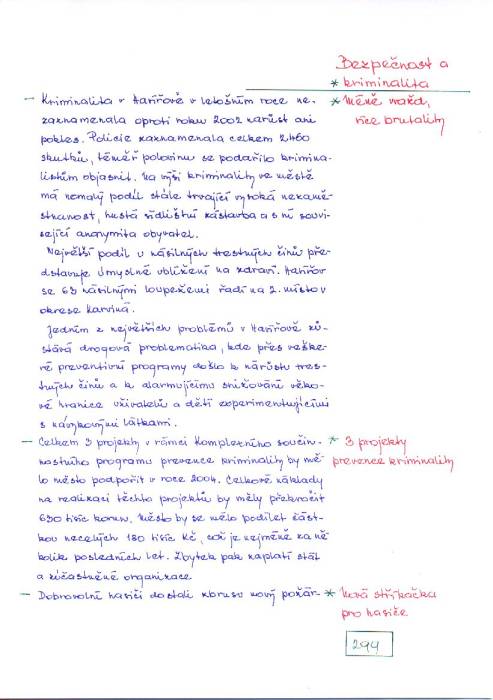 Bezpečnost a
* kriminalita
– Kriminalita v Havířově v letošním roce ne-
* Méně vražd,
zaznamenala oproti roku 2002 nárůst ani
více brutality
pokles. Policie zaznamenala celkem 2460
skutků, téměř polovinu se podařilo krimina-
listům objasnit. Na výši kriminality ve městě
má nemalý podíl stále trvající vysoká nezamě-
stnanost, hustá sídlištní zástavba a s ní souvi-
sející anonymita obyvatel.
Největší podíl u násilných trestných činů pře-
dstavuje úmyslné ublížení na zdraví. Havířov
se 63 násilnými loupežemi řadí na 2. místo v
okrese Karviná.
Jedním z největších problémů v Havířově zů-
stává drogová problematika, kde přes veške-
ré preventivní programy došlo k nárůstu tres-
tných činů a k alarmujícímu snižování věko-
vé hranice uživatelů a dětí experimentujícími
s návykovými látkami.
– Celkem 3 projekty v rámci Kompletního součin-
* 3 projekty
nostního programu prevence kriminality by mě-
prevence kriminality
lo město podpořit v roce 2004. Celkové náklady
na realizaci těchto projektů by měly překročit
630 tisíc korun. Město by se mělo podílet část-
kou necelých 130 tisíc Kč, což je nejméně za ně-
kolik posledních let. Zbytek pak zaplatí stát
a zúčastněné organizace
– Dobrovolní hasiči dostali zbrusu nový požár-
* Nová stříkačka
pro hasiče
294